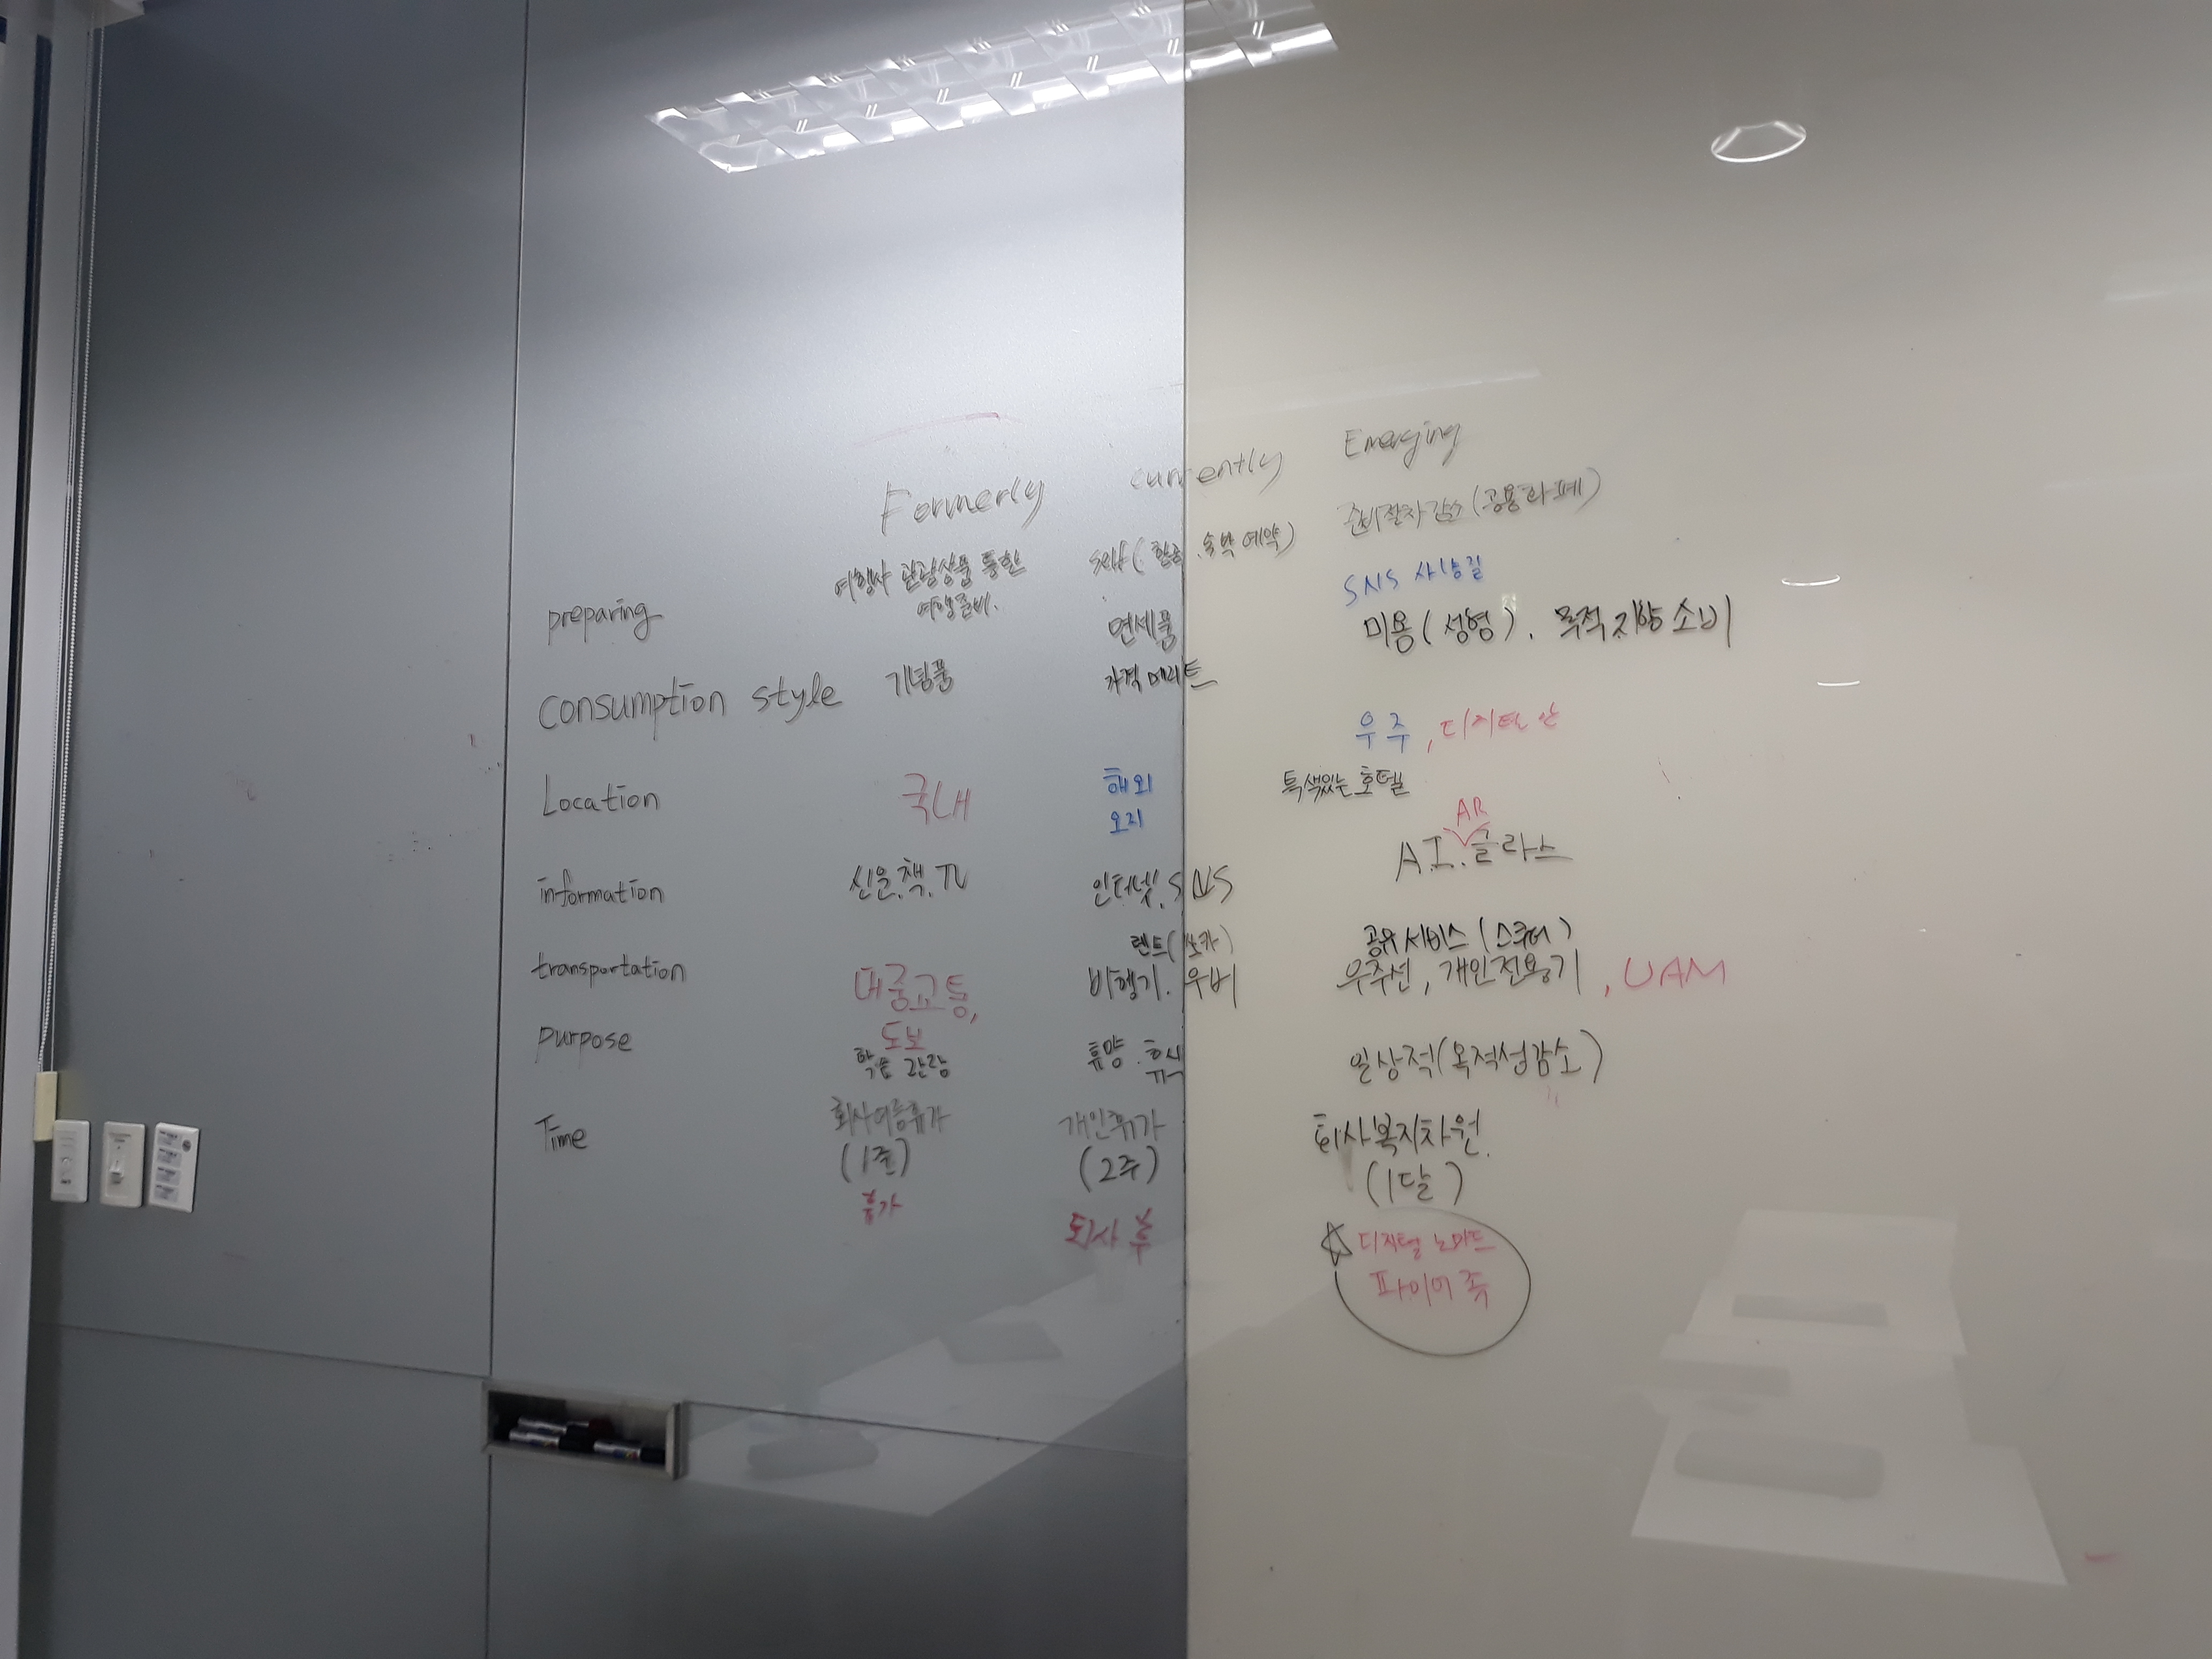 Formerly
currently
Emerging
preparing
여행사 관광상품 통한
여행준비.
숙박 예약)
준비절차 감소 (공용화폐)
SNS
consumption style
기념품
면세품
가격 메리트
미용(성형). 목적지향 소비
Location
국내
해외
오지
우주, 디지털
특색있는 호텔
information
신문.책.TV
인터넷. SNS
AR
A.I. 글라스
transportation
대중교통,
도보
렌트(쏘카)
비행기. 우버
공유서비스 (스쿠터)
우주선, 개인전용기, UAM
purpose
학습 관광
휴양. 휴식
일상적(목적성감소)
Time
회사여름휴가
(1주)
휴가
개인휴가
(2주)
퇴사 후
회사복지차원.
(1달)
☆ 디지털 노마드
파이어 족